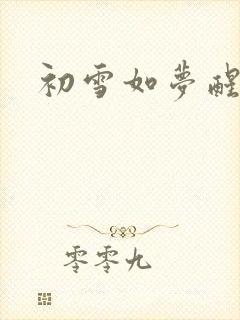 初雪如夢醒
零零九